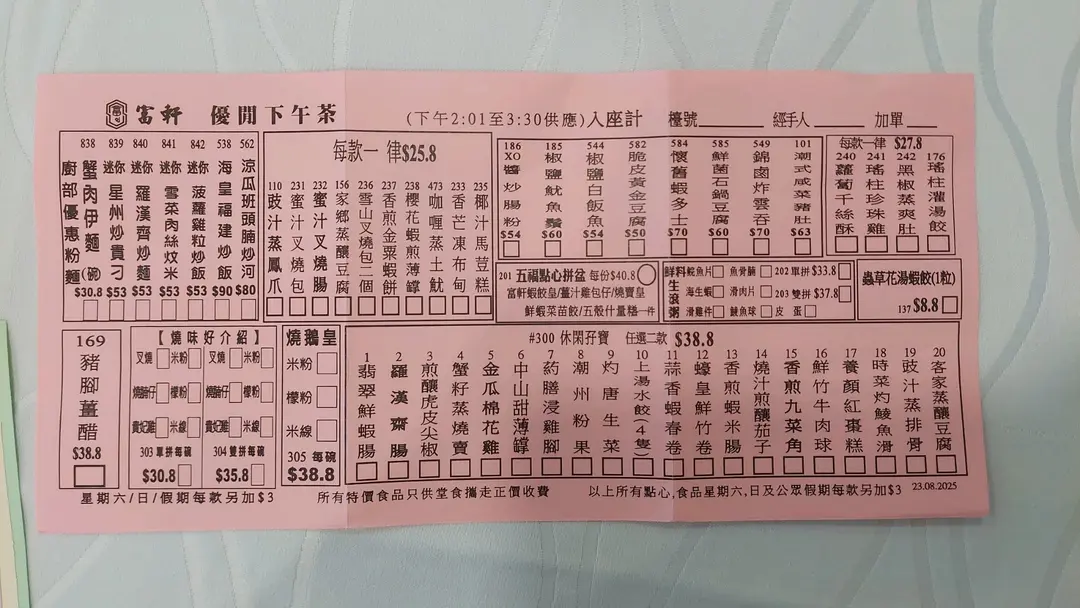 富軒 優閒下午茶 (下午2:01至3:30供應)入座計 檯號 經手人 加單
838 廚部優惠粉麵 蟹肉伊麵(碗) $30.8
839 迷你星州炒貴刁 $53
840 迷你羅漢齊炒麵 $53
841 迷你雪菜肉絲炆米 $53
842 迷你菠蘿雞粒炒飯 $53
538 海皇福建炒飯 $90
562 涼瓜班頭腩炒河 $80
每款一律$25.8
110 豉汁蒸鳳爪
231 蜜汁叉燒包
232 蜜汁叉燒腸
156 家鄉蒸釀豆腐
236 雪山叉燒包二個
237 香煎金粟蝦餅
238 櫻花蝦煎薄罉
473 咖喱蒸土魷
233 香芒凍布甸
235 椰汁馬荳糕
186 XO醬炒腸粉 $54
185 椒鹽魷魚鬚 $60
544 椒鹽白飯魚 $54
582 脆皮黃金豆腐 $50
584 懷舊蝦多士 $70
585 鮮菌石鍋豆腐 $60
549 錦鹵炸雲吞 $70
101 潮式咸菜豬肚 $63
每款一律 $27.8
240 蘿蔔千絲酥
241 瑤柱珍珠雞
242 黑椒蒸爽肚
176 瑤柱灌湯餃
201 五福點心拼盆 每份$40.8
富軒蝦餃皇/薑汁雞包仔/燒賣皇
鮮蝦菜苗餃/五殼什量糕一件
生滾粥
鮮料 鯇魚片 魚骨腩 202單拼$33.8
海生蝦 滑肉片 203雙拼$37.8
滑雞件 鯪魚球 皮蛋
蟲草花湯蝦餃(1粒)
137 $8.8
169
豬腳薑醋
$38.8
【燒味好介紹】
叉燒 米粉 叉燒 米粉
燒腩仔 檬粉 燒腩仔 檬粉
貴妃雞 米線 貴妃雞 米線
303單拼每碗 304雙拼每碗
$30.8 $35.8
燒鵝皇
米粉
檬粉
米線
305 每碗
$38.8
#300 休閑孖寶 任選二款 $38.8
1 翡翠鮮蝦腸
2 羅漢齋腸
3 煎釀虎皮尖椒
4 蟹籽蒸燒賣
5 金瓜棉花雞
6 中山甜薄罉
7 葯膳浸雞腳
8 潮州粉果
9 灼唐生菜
10 上湯水餃(4隻)
11 蒜香蝦春卷
12 蠔皇鮮竹卷
13 香煎蝦米腸
14 燒汁煎釀茄子
15 香煎九菜角
16 鮮竹牛肉球
17 養顏紅棗糕
18 時菜灼鯪魚滑
19 豉汁蒸排骨
20 客家蒸釀豆腐
星期六/日/假期每款另加$3 所有特價食品只供堂食攜走正價收費 以上所有點心,食品星期六,日及公眾假期每款另加$3 23.08.2025